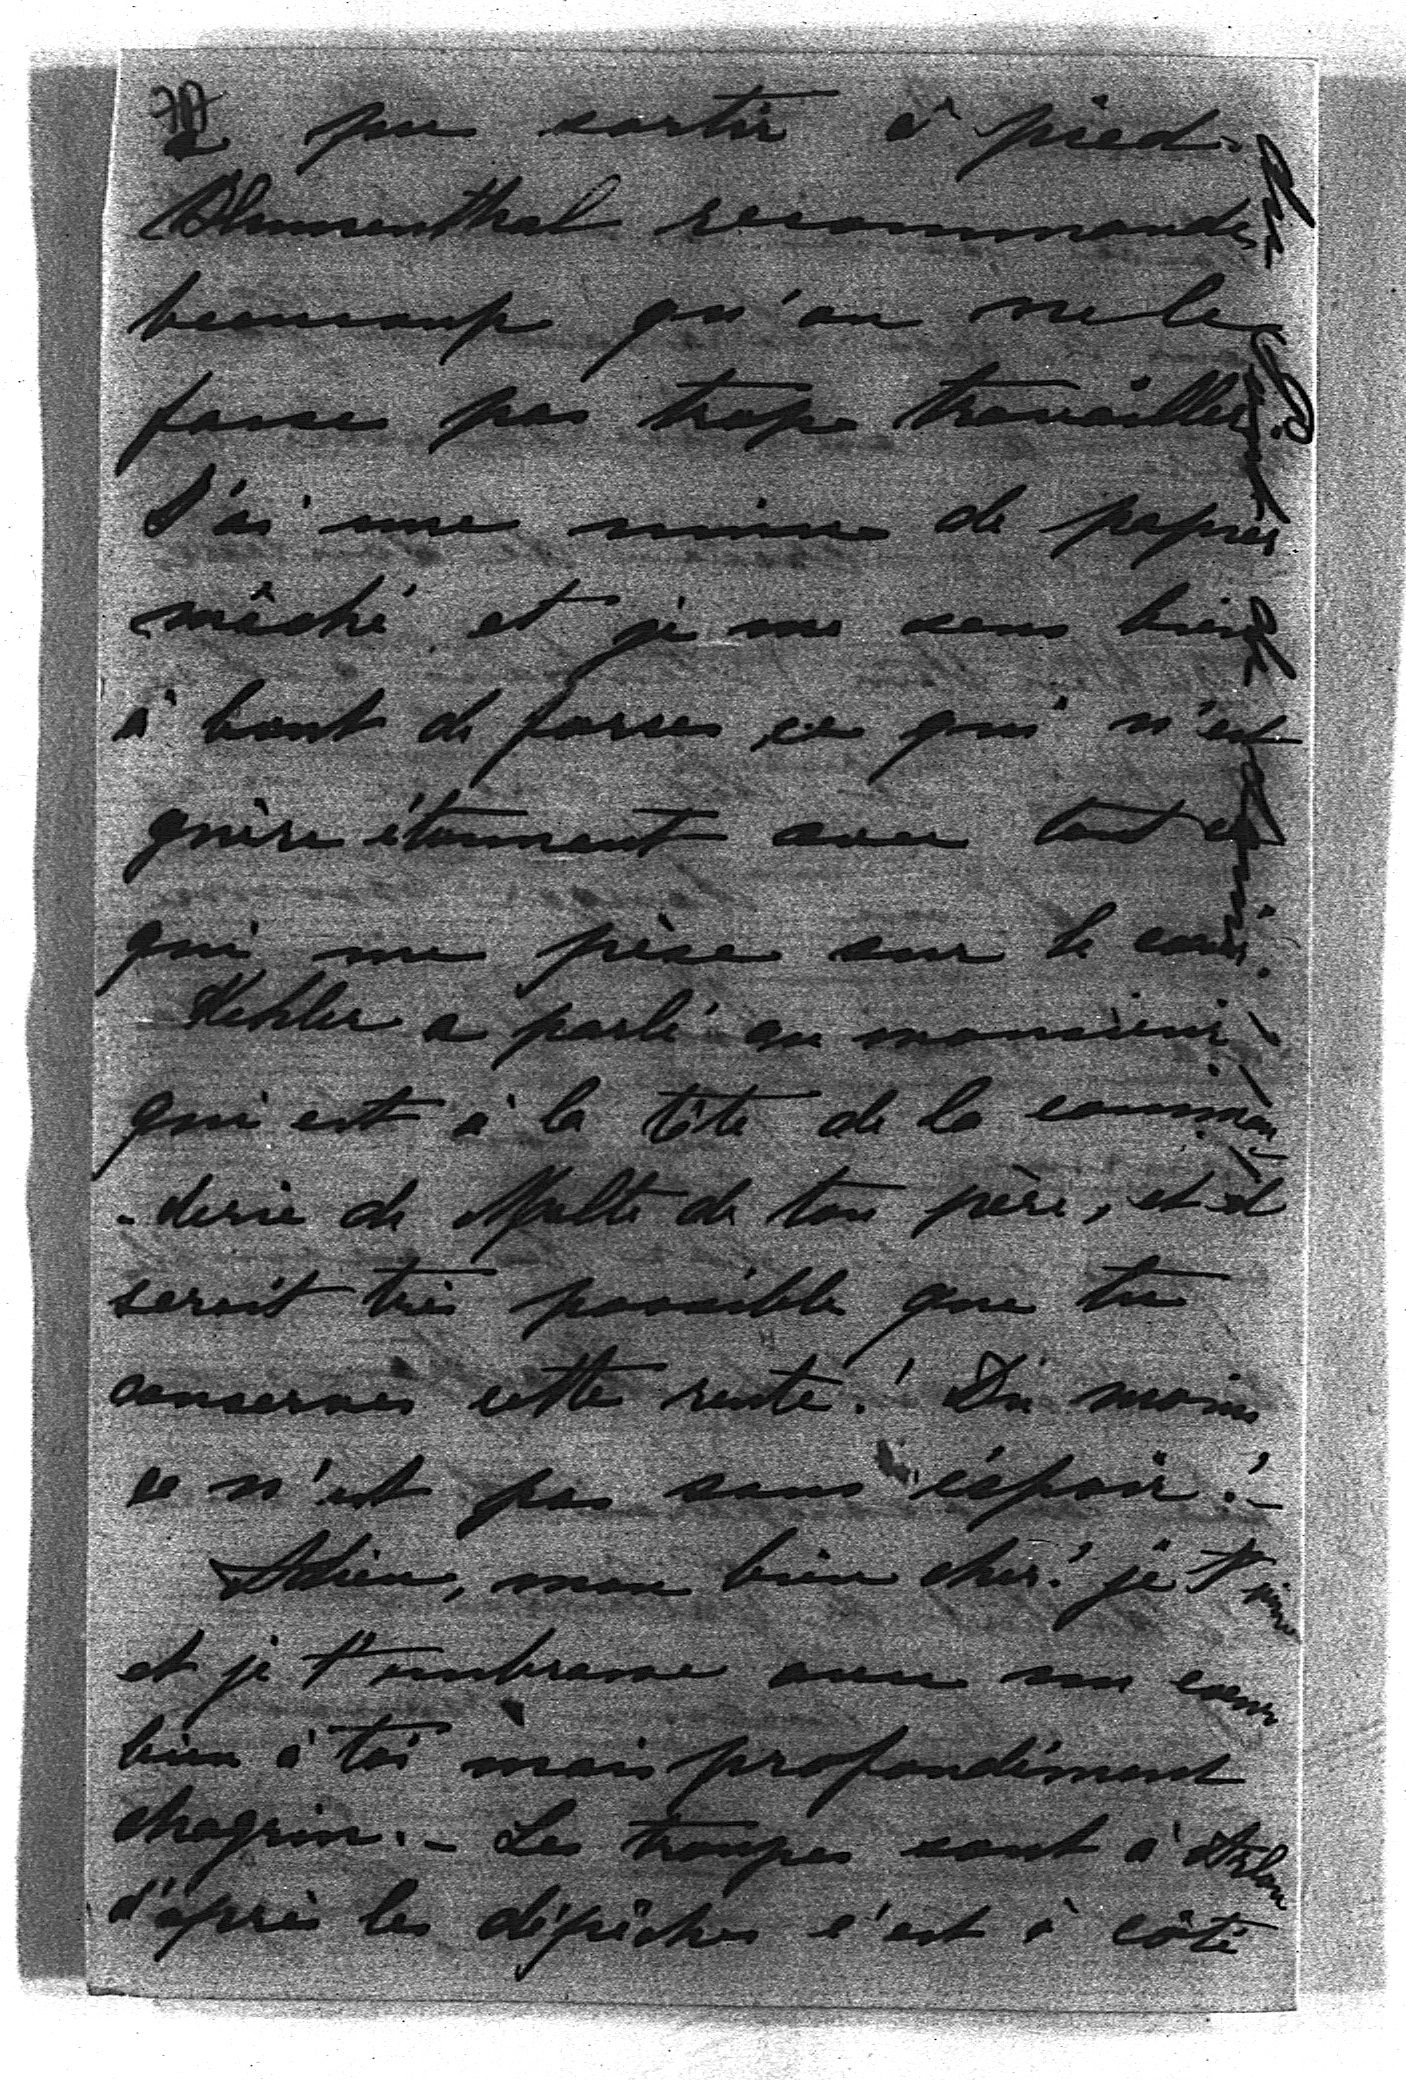 a pu sortir à pied.
Blumenthal recommande
beaucoup qu'on ne le
fasse pas trop travailler
J'ai une mine de papier
mâché et je me sens bien
à bout de forces, ce qui n'est
guère étonnant avec tout ce
qui me pèse sur le cœur.
Kehler a parlé au monsieur
qui est à la tête de la comman
-derie de Malte de ton père, et il
serait très possible que tu
conserves cette rente! Du moins
ce n'est pas sans espoir! -
Adieu, mon bien cher! je t'aime
et je t'embrasse avec un cœur
bien à toi mais profondément
chagrin. - Les troupes sont à Arlon
d'après les dépêches c'est à côté